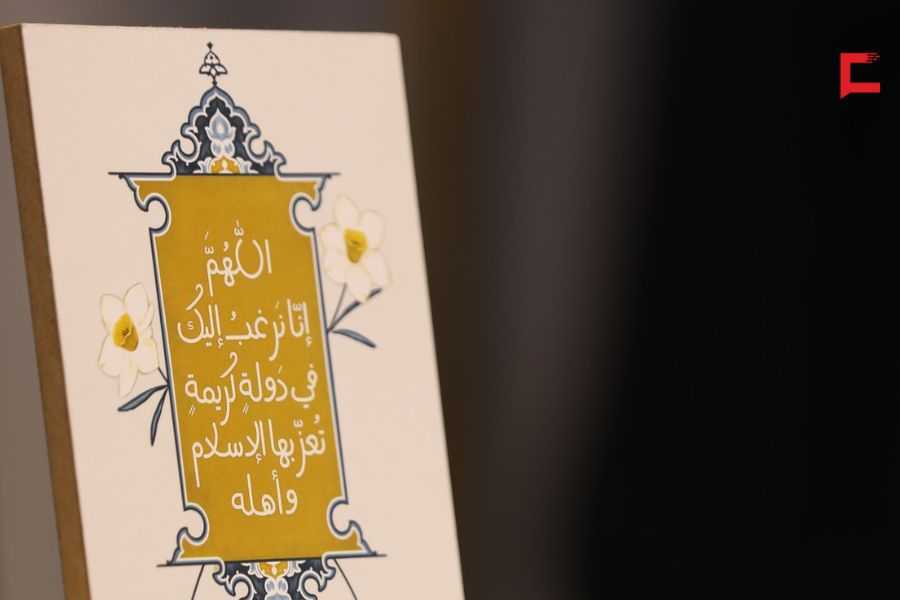 اللَّهُمَّ
إنّا نَرغبُ إليك
في دَولةٍ كَريمةٍ
تُعزّ بها الإسلام
وأهله